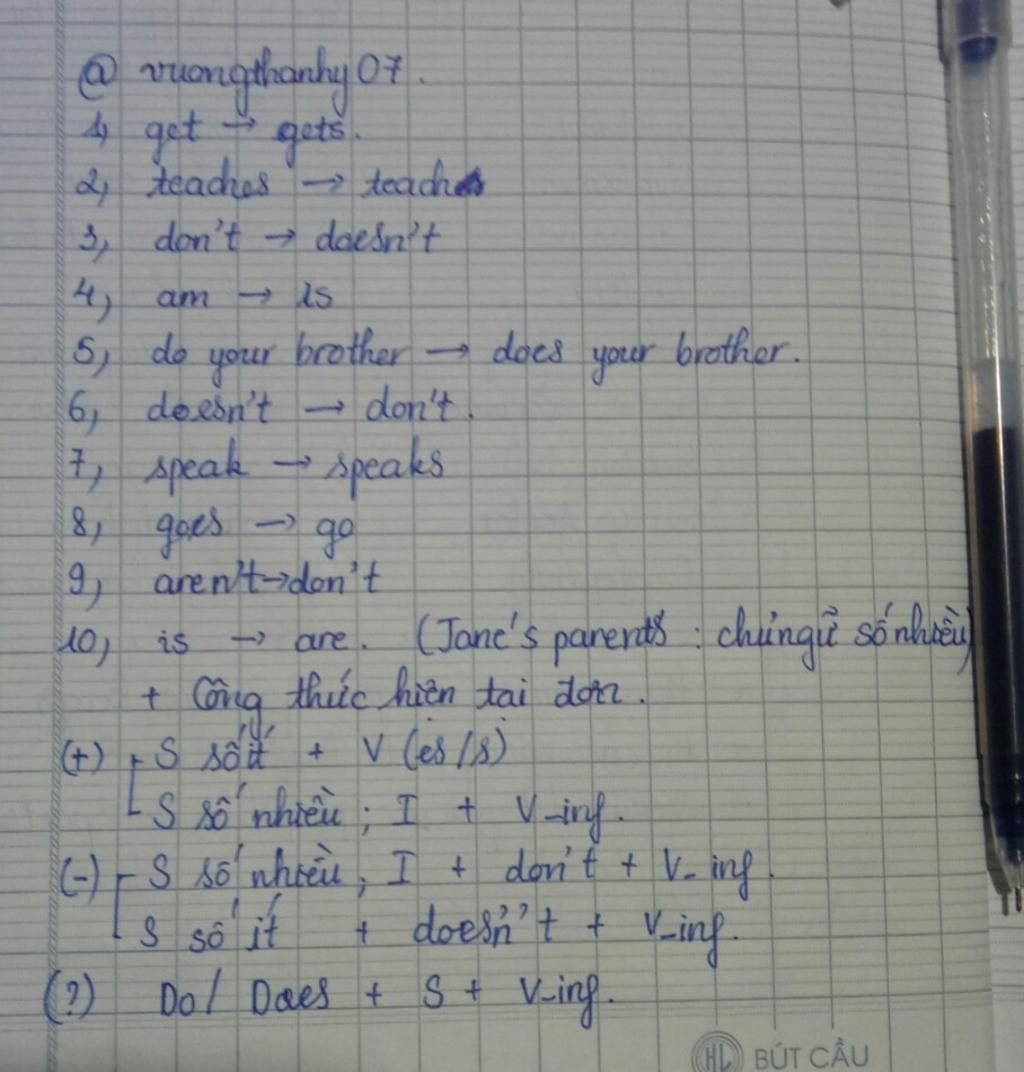 @ vuongthanhy07.
1, get → gets.
2, teaches → teach
3, don't → doesn't
4, am → is
5, do your brother → does your brother.
6, doesn't → don't.
7, speak → speaks
8, goes → go
9, aren't→don't
10, is → are. (Jane's parents : chủ ngữ số nhiều)
+ Công thức hiện tại đơn.
(+) S số ít + V (es/s)
S số nhiều ; I + V_inf.
(-) S số nhiều, I + don't + V_inf.
S số ít + doesn't + V_inf.
(?) Do/ Does + S + V_inf.
HL BÚT CẦU